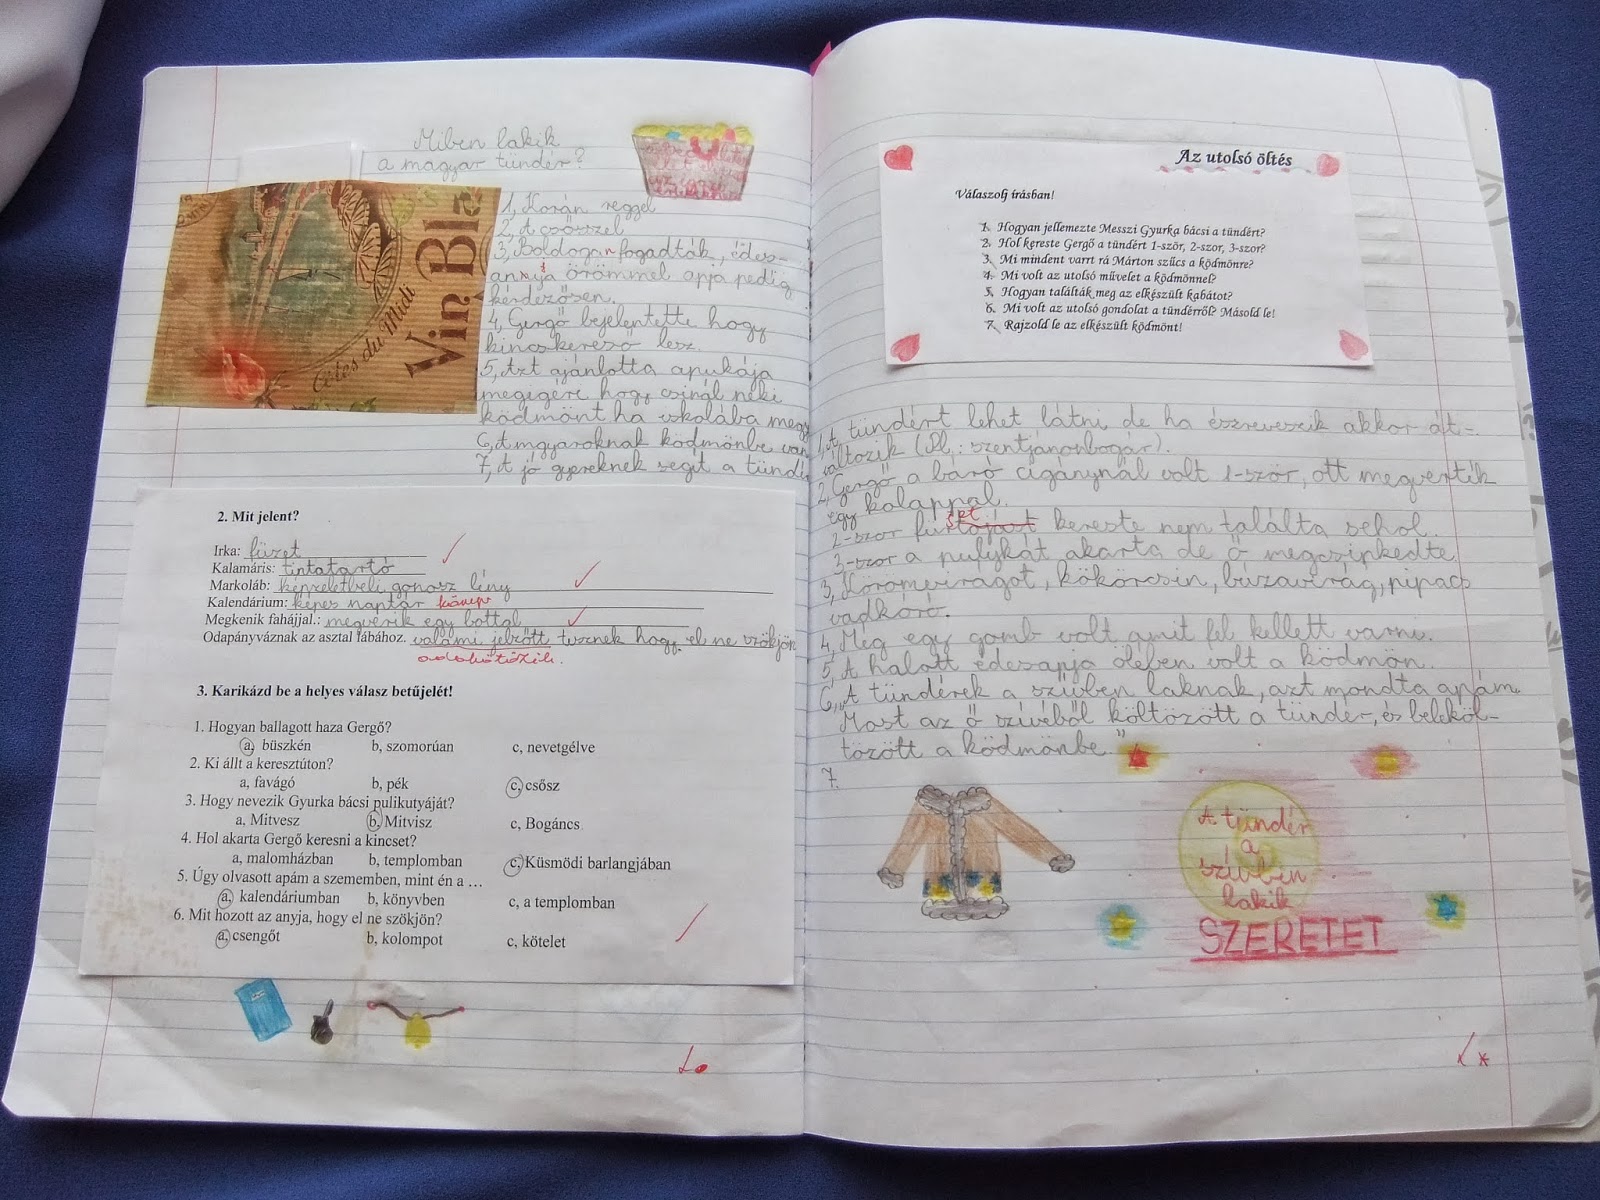 Miben lakik
a magyar tündér?
Côtes du Midi
Vin Bla
1, Korán reggel
2, A csősszel
3, Boldogan fogadták, édes-
annyja örömmel apja pedig
kérdezősen.
4, Gergő bejelentette hogy
kincskereső lesz.
5, Azt ajánlotta apukája
megigére hogy csinál neki
ködmönt ha iskolába megy
6, A mgyaroknak ködmönbe van
7, A jó gyereknek segít a tündé
2. Mit jelent?
Irka: füzet
Kalamáris: tintatartó
Markoláb: képzeletbeli gonosz lény
Kalendárium: képes naptár könyv
Megkenik fahájjal.: megverik egy bottal
Odapányváznak az asztal lábához. valami jelzőtt tesznek hogy el ne szökjön
odakötözik.
3. Karikázd be a helyes válasz betűjelét!
1. Hogyan ballagott haza Gergő?
a, büszkén b, szomorúan c, nevetgélve
2. Ki állt a keresztúton?
a, favágó b, pék c, csősz
3. Hogy nevezik Gyurka bácsi pulikutyáját?
a, Mitvesz b, Mitvisz c, Bogáncs
4. Hol akarta Gergő keresni a kincset?
a, malomházban b, templomban c, Küsmödi barlangjában
5. Úgy olvasott apám a szememben, mint én a …
a, kalendáriumban b, könyvben c, a templomban
6. Mit hozott az anyja, hogy el ne szökjön?
a, csengőt b, kolompot c, kötelet
Az utolsó öltés
Válaszolj írásban!
1. Hogyan jellemezte Messzi Gyurka bácsi a tündért?
2. Hol kereste Gergő a tündért 1-ször, 2-szor, 3-szor?
3. Mi mindent varrt rá Márton szűcs a ködmönre?
4. Mi volt az utolsó művelet a ködmönnel?
5. Hogyan találták meg az elkészült kabátot?
6. Mi volt az utolsó gondolat a tündérről? Másold le!
7. Rajzold le az elkészült ködmönt!
1, A tündért lehet látni de ha észreveszik akkor át-
változik (Pl.: szentjánonbogár).
2, Gergő a báró cigánynál volt 1-ször, ott megverték
egy kalappal.
2-szor kereste nem találta sehol.
3-szor a pulykát akarta de ő megcsipkedte
3, Körömvirágot, kökörcsin, búzavirág, pipacs
vadkóró.
4, Még egy gomb volt amit fel kellett varrni.
5, A halott édesapja ölében volt a ködmön.
6, „A tündérek a szívben laknak, azt mondta apám.
Most az ő szívéből költözött a tündér, és beleköl-
tözött a ködmönbe"
7.
A tündér
a
szívben
lakik
SZERETET